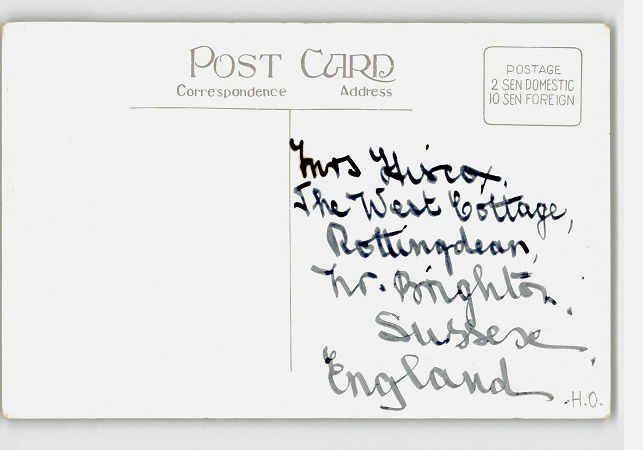 POST CARD
Correspondence Address
POSTAGE
2 SEN DOMESTIC
10 SEN FOREIGN
Mrs Hiscox.
The West Cottage,
Rottingdean,
Nr. Brighton,
Sussex,
England
H.O.